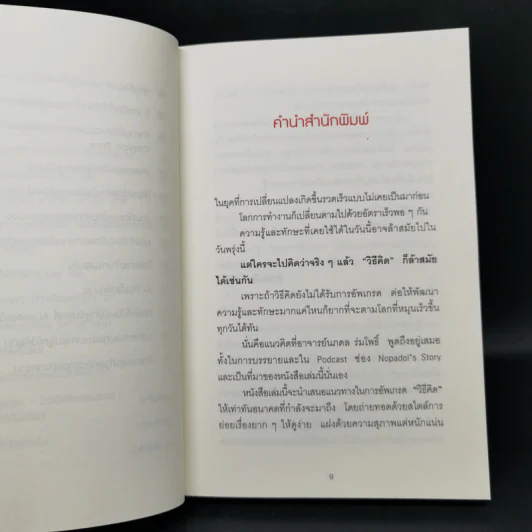 คำนำสำนักพิมพ์
ในยุคที่การเปลี่ยนแปลงเกิดขึ้นรวดเร็วแบบไม่เคยเป็นมาก่อน
โลกการทำงานก็เปลี่ยนตามไปด้วยอัตราเร็วพอ ๆ กัน
ความรู้และทักษะที่เคยใช้ได้ในวันนี้อาจล้าสมัยไปใน
วันพรุ่งนี้
แต่ใครจะไปคิดว่าจริง ๆ แล้ว "วิธีคิด" ก็ล้าสมัย
ได้เช่นกัน
เพราะถ้าวิธีคิดยังไม่ได้รับการอัพเกรด ต่อให้พัฒนา
ความรู้และทักษะมากแค่ไหนก็ยากที่จะตามโลกที่หมุนเร็วขึ้น
ทุกวันได้ทัน
นั่นคือแนวคิดที่อาจารย์นภดล ร่มโพธิ์ พูดถึงอยู่เสมอ
ทั้งในการบรรยายและใน Podcast ช่อง Nopadol's Story
และเป็นที่มาของหนังสือเล่มนี้นั่นเอง
หนังสือเล่มนี้จะนำเสนอแนวทางในการอัพเกรด "วิธีคิด"
ให้เท่าทันอนาคตที่กำลังจะมาถึง โดยถ่ายทอดด้วยสไตล์การ
ย่อยเรื่องยาก ๆ ให้ดูง่าย แฝงด้วยความสุภาพแต่หนักแน่น
9